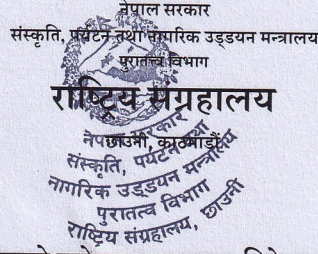 नेपाल सरकार
संस्कृति, पर्यटन तथा नागरिक उड्डयन मन्त्रालय
पुरातत्व विभाग
राष्ट्रिय संग्रहालय
छाउनी, काठमाडौं
नेपाल सरकार
संस्कृति, पर्यटन तथा
नागरिक उड्डयन मन्त्रालय
पुरातत्व विभाग
राष्ट्रिय संग्रहालय, छाउनी